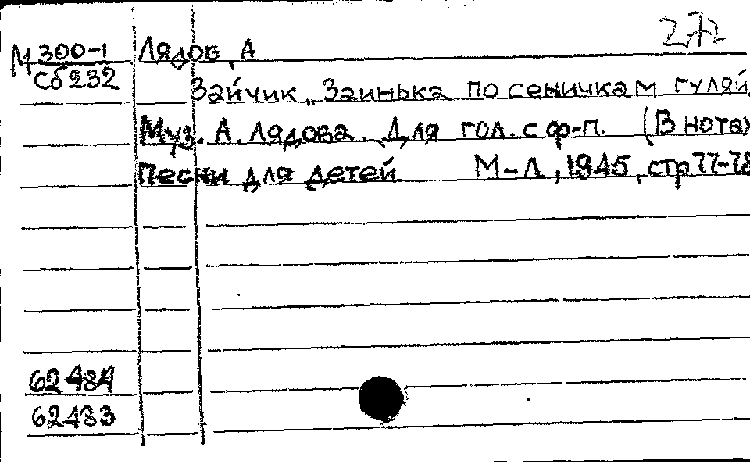 272
М 300-1 Лядов, А
Сб232
Зайчик „Заинька по сеничкам гуляй
Муз. А. Лядова. Для гол. с ф-п. (В нотах
Песни для детей М-Л, 1945, стр 77-78
62484
62483